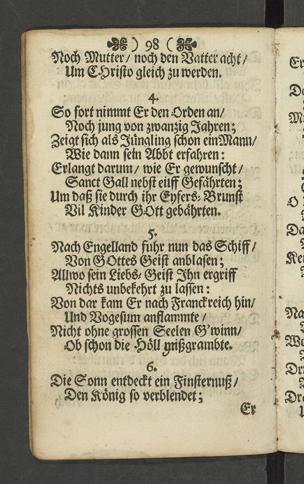 ) 98 (
Noch Mutter / noch den Vatter acht /
Um CHristo gleich zu werden.
4.
So fort nimmt Er den Orden an /
Noch jung von zwanzig Jahren;
Zeigt sich als Jüngling schon ein Mann /
Wie dann sein Abbt erfahren:
Erlangt darum / wie Er gewunscht /
Sanct Gall nebst eilff Gefährten;
Um daß sie durch ihr Eyfers-Brunst
Vil Kinder GOtt gebährten.
5.
Nach Engelland fuhr nun das Schiff /
Von GOttes Geist anblasen;
Allwo sein Liebs-Geist Ihn ergriff
Nichts unbekehrt zu lassen:
Von dar kam Er nach Franckreich hin /
Und Vogesum anflammte /
Nicht ohne grossen Seelen G'winn /
Ob schon die Höll grißgrambte.
6.
Die Sonn entdeckt ein Finsternuß /
Den König so verblendet;
Er